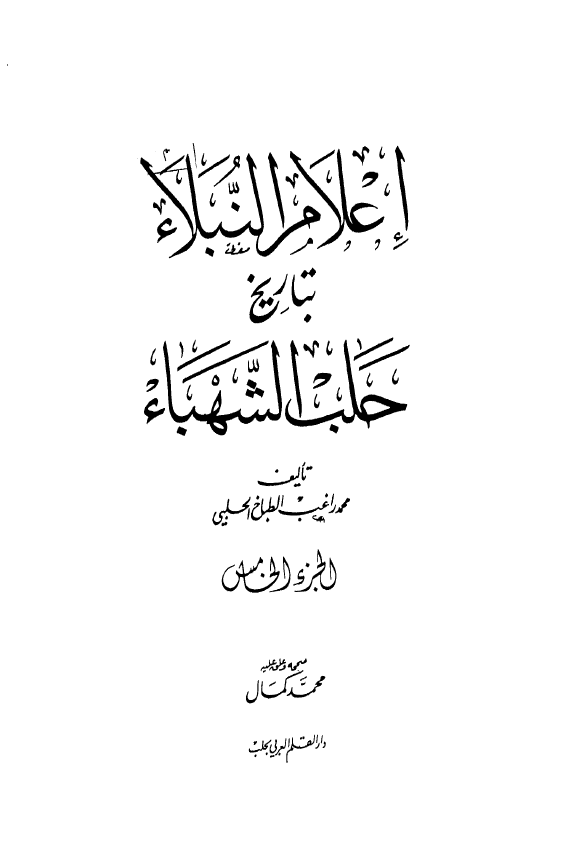 إعلام النبلاء
بتاريخ
حلب الشهباء
تأليف
محمد راغب الطباخ الحلبي
الجزء الخامس
صححه وعلق عليه
محمد كمال
دار القلم العربي بحلب